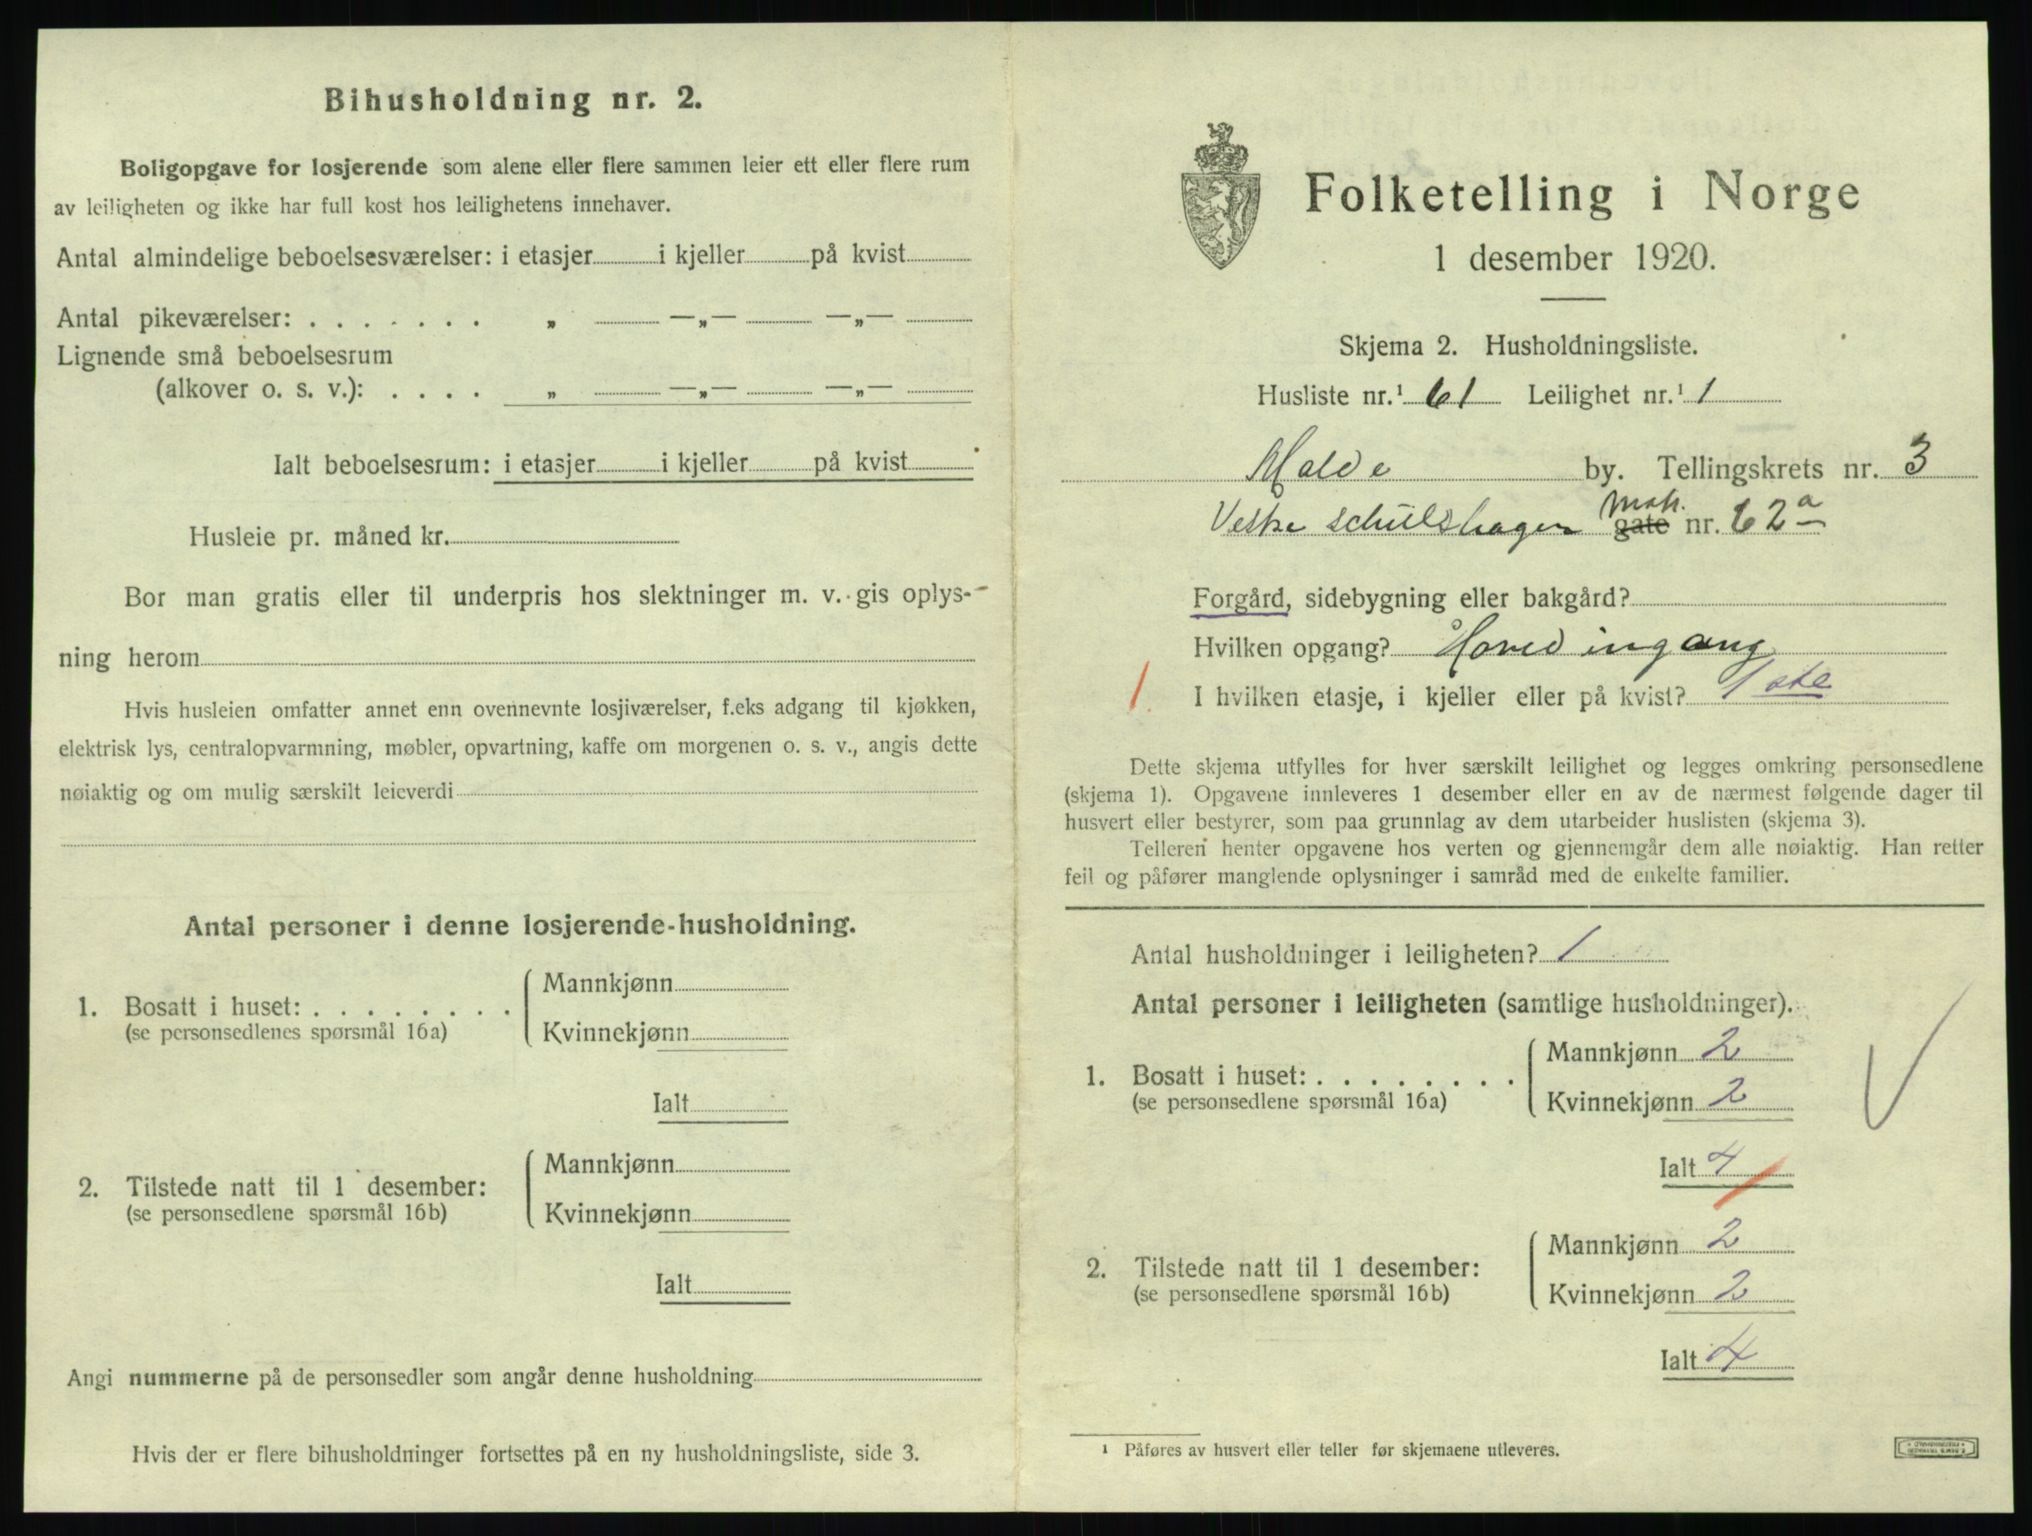 Bihusholdning nr. 2.
Boligopgave for losjerende som alene eller flere sammen leier ett eller flere rum
av leiligheten og ikke har full kost hos leilighetens innehaver.
Antal almindelige beboelsesværelser: i etasjer i kjeller på kvist
Antal pikeværelser: . . . . . . . „ —„— —„—
Lignende små beboelsesrum
(alkover o. s. v.): . . . . „ —„— —„—
Ialt beboelsesrum: i etasjer i kjeller på kvist
Husleie pr. måned kr.
Bor man gratis eller til underpris hos slektninger m. v. gis oplys-
ning herom
Hvis husleien omfatter annet enn ovennevnte losjiværelser, f.eks adgang til kjøkken,
elektrisk lys, centralopvarmning, møbler, opvartning, kaffe om morgenen o. s. v., angis dette
nøiaktig og om mulig særskilt leieverdi
Antal personer i denne losjerende-husholdning.
1. Bosatt i huset: . . . . . . . .
(se personsedlenes spørsmål 16a)
Mannkjønn
Kvinnekjønn
Ialt
2. Tilstede natt til 1 desember:
(se personsedlene spørsmål 16b)
Mannkjønn
Kvinnekjønn
Ialt
Angi nummerne på de personsedler som angår denne husholdning
Hvis der er flere bihusholdninger fortsettes på en ny husholdningsliste, side 3.
Folketelling i Norge
1 desember 1920.
Skjema 2. Husholdningsliste.
Husliste nr.¹ 61 Leilighet nr.¹ 1
Molde by. Tellingskrets nr. 3
gate nr. 62a
Forgård, sidebygning eller bakgård?
Hvilken opgang? Hovedingang
1. I hvilken etasje, i kjeller eller på kvist? 1ste
Dette skjema utfylles for hver særskilt leilighet og legges omkring personsedlene
(skjema 1). Opgavene innleveres 1 desember eller en av de nærmest følgende dager til
husvert eller bestyrer, som paa grunnlag av dem utarbeider huslisten (skjema 3).
Telleren henter opgavene hos verten og gjennemgår dem alle nøiaktig. Han retter
feil og påfører manglende oplysninger i samråd med de enkelte familier.
Antal husholdninger i leiligheten? 1
Antal personer i leiligheten (samtlige husholdninger).
1. Bosatt i huset: . . . . . . . .
(se personsedlene spørsmål 16a)
Mannkjønn 2
Kvinnekjønn 2
Ialt 4
2. Tilstede natt til 1 desember:
(se personsedlene spørsmål 16b)
Mannkjønn 2
Kvinnekjønn 2
Ialt 4
¹ Påføres av husvert eller teller før skjemaene utleveres.